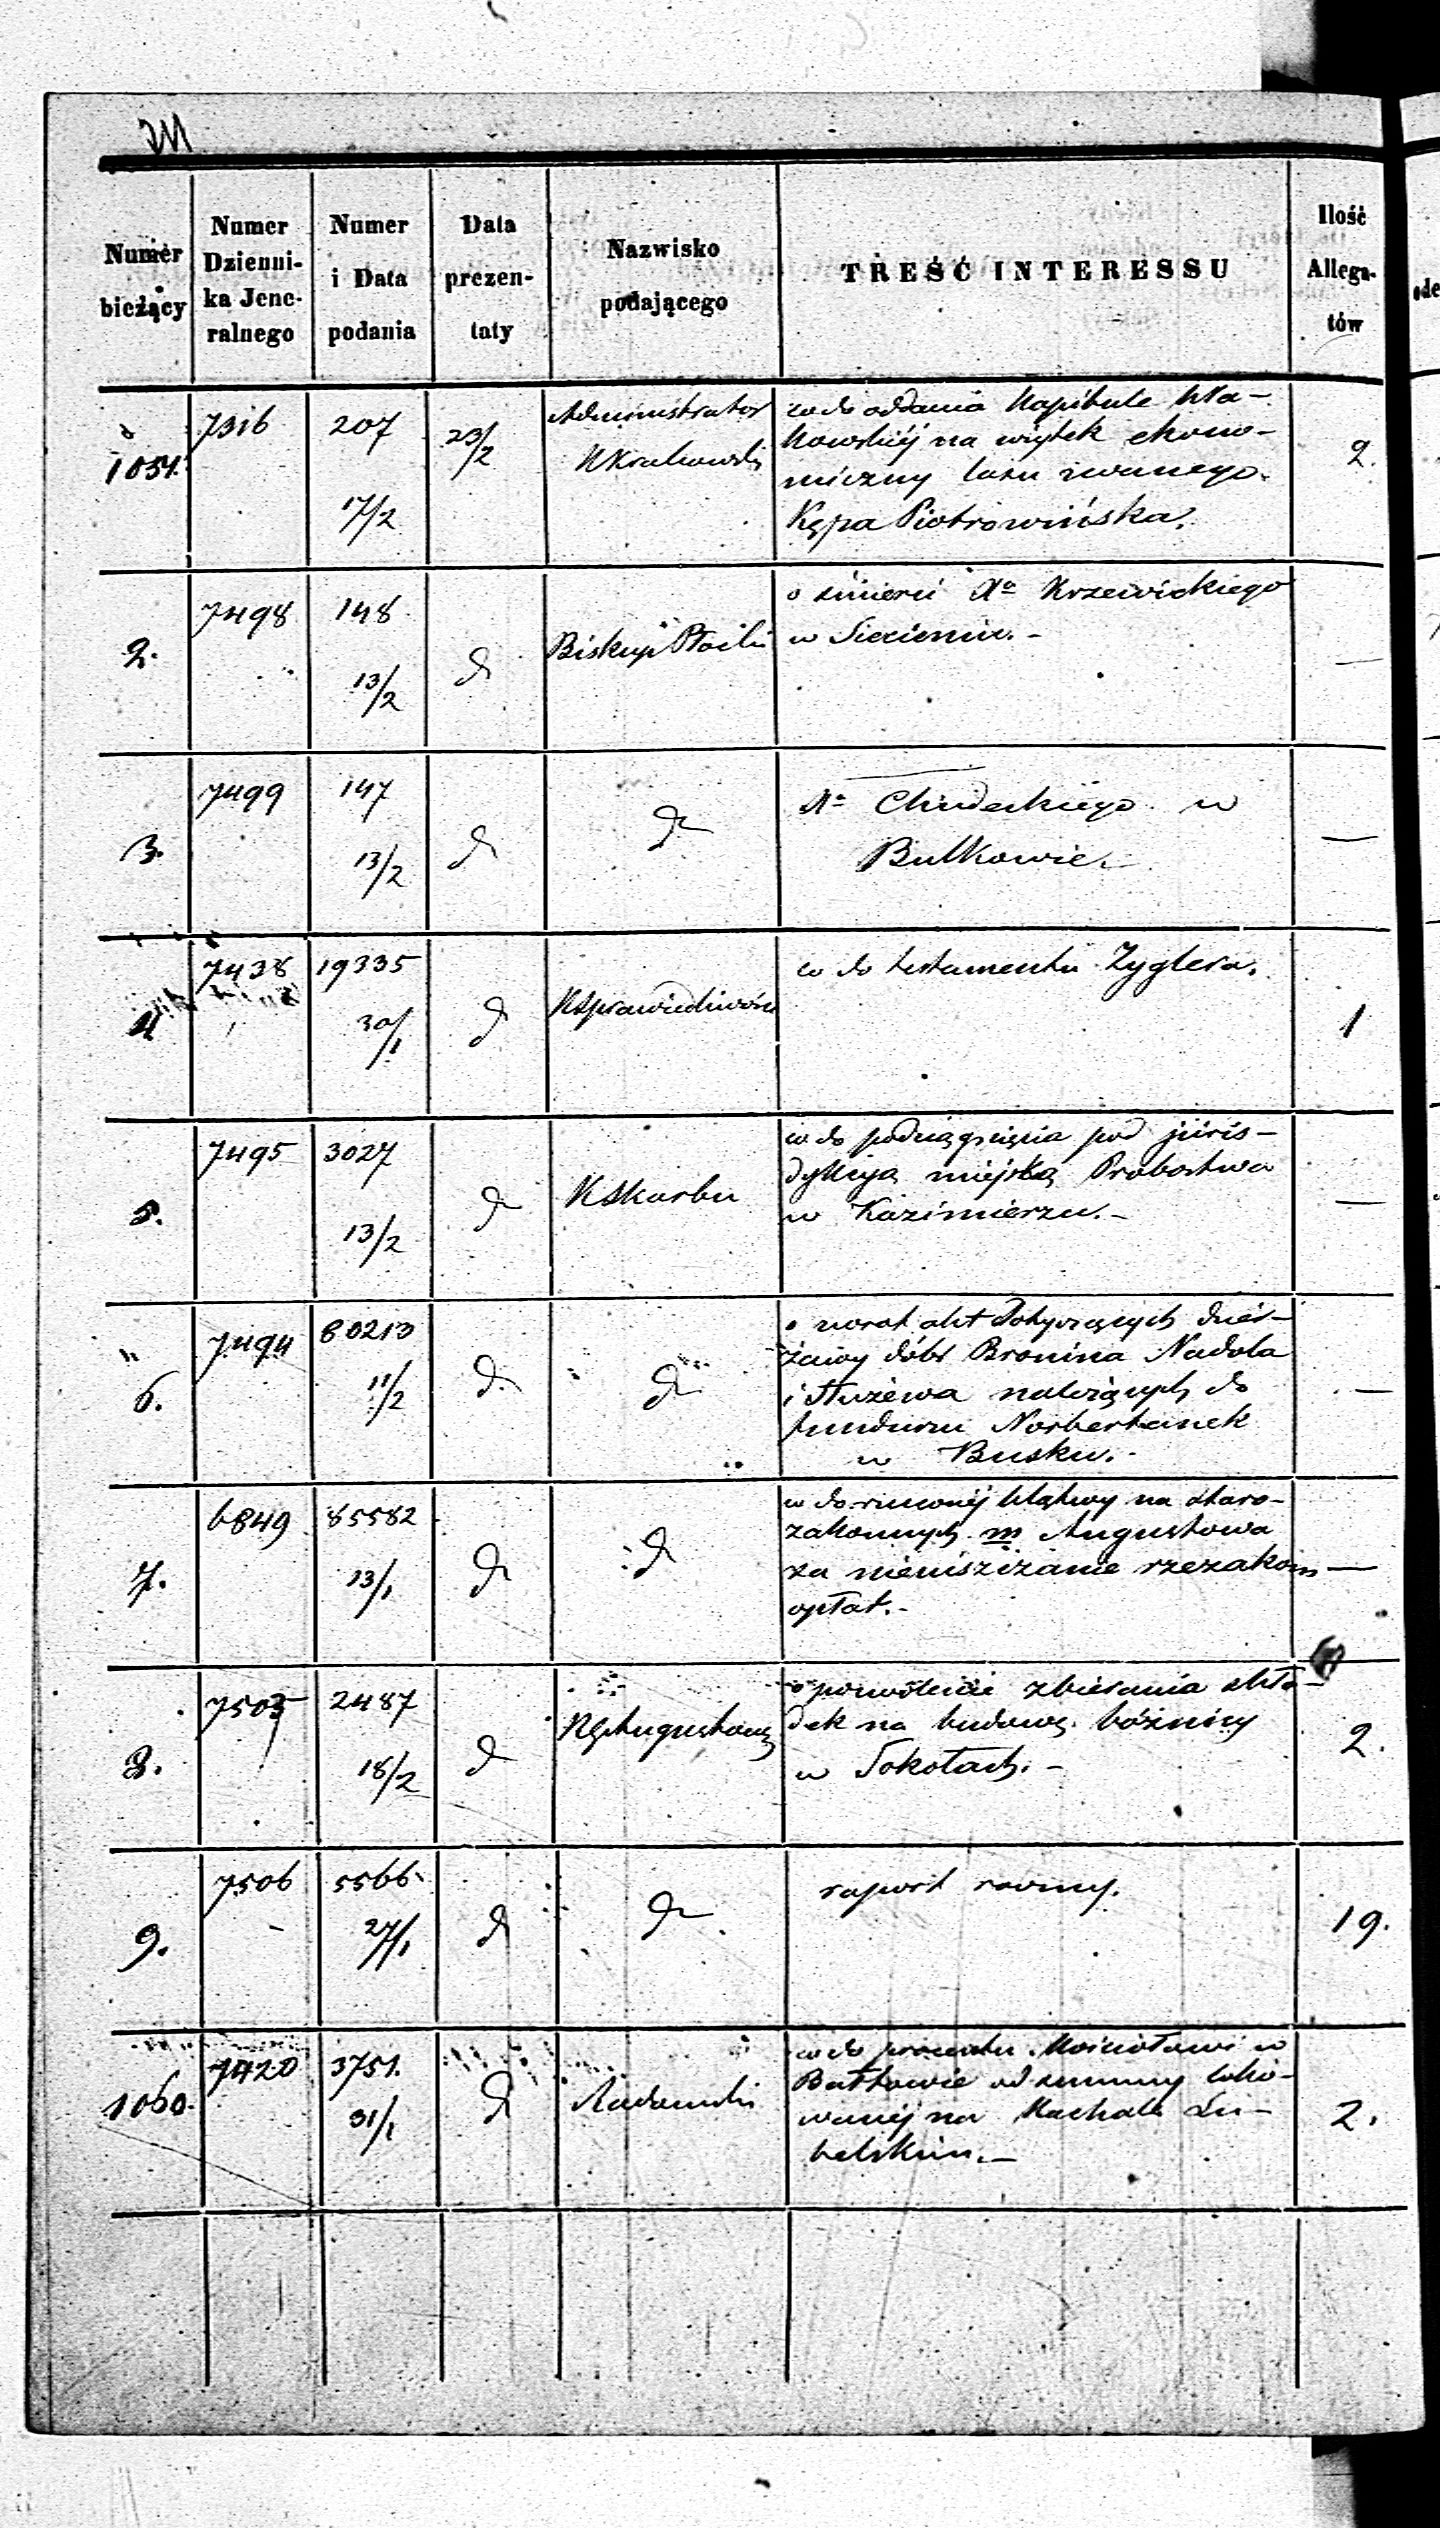 Numer bieżący
Numer Dzienni-ka Jene-ralnego
Numer i Data podania
Data prezen-taty
Nazwisko podającego
TREŚĆ INTERESSU
Ilość Allega-tów
1054. 7316 207 17/2 23/2 Administrator
w do oddania Kapitule
na wiątek ekono-
miczny lasu zwanego
Kępa Piotrowińska.
2.
2. 7498 148 13/2 d Biskup Płocki
o śmierci Xa Krzewickiego
w Siecieniu. -
—
3. 7499 147 13/2 d d
Xa Chudeckiego w
Bulkowie.
—
4 7438 19335 30/1 d KSprawiedliwości
w do testamentu Zyglera.
1
5. 7495 3027 13/2 d KSkarbu
w do podciągnięcia pod juris-
dykcyą miejską Probostwa
w Kazimierzu. -
—
6. 7494 80213 11/2 d d
o zwrot akt dotyczących dzier-
żawy dóbr Bronina Nadola
i Służewa należących do
funduszu Norbertanek
w Busku. -
—
7. 6849 85582 13/1 d d
na staro-
zakonnych m Augustowa
za nieuiszczanie rzezakom
opłat. -
—
8. 7505 2487 18/2 d RGAugustowsk
o pozwolenie zbierania skła-
dek na budowę bóżnicy
w Sokołach. -
2.
9. 7506 5566 27/1 d d
raport roczny.
19.
1060. 7420 3751. 31/1 d Radomski
w do procentu Kościołowi w
od summy loko-
wanéj na Kachale Lu-
belskim. -
2.